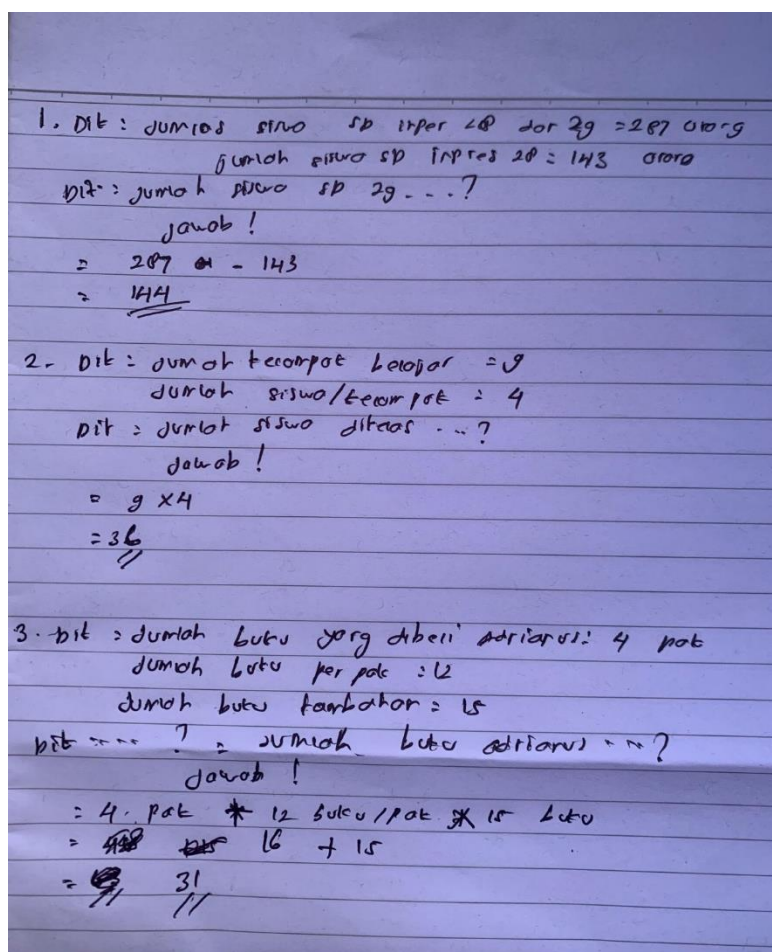 1. Dit : Jumlah siswo SD inper 28 dor 29 = 287 orong
Jumlah siswo SD inpres 28 = 143 orong
Dit : Jumloh siswo SD 29 ... ?
Jawob !
= 287 - 143
= 144
2. Dit : Jumloh kecompok belojor = 9
Jumloh siswo/kecompok = 4
Dit : Jumloh siswo dikeos ... ?
Jawab !
= 9 x 4
= 36
3. Dit : Jumlah buku yong dibeli Adrianus : 4 pak
Jumloh buku per pak : 12
Jumloh buku tambahan = 15
Dit .... ? = Jumlah buku adrianus ... ?
Jawab !
= 4 pak * 12 buku/pak * 15 buku
= 16 + 15
= 31